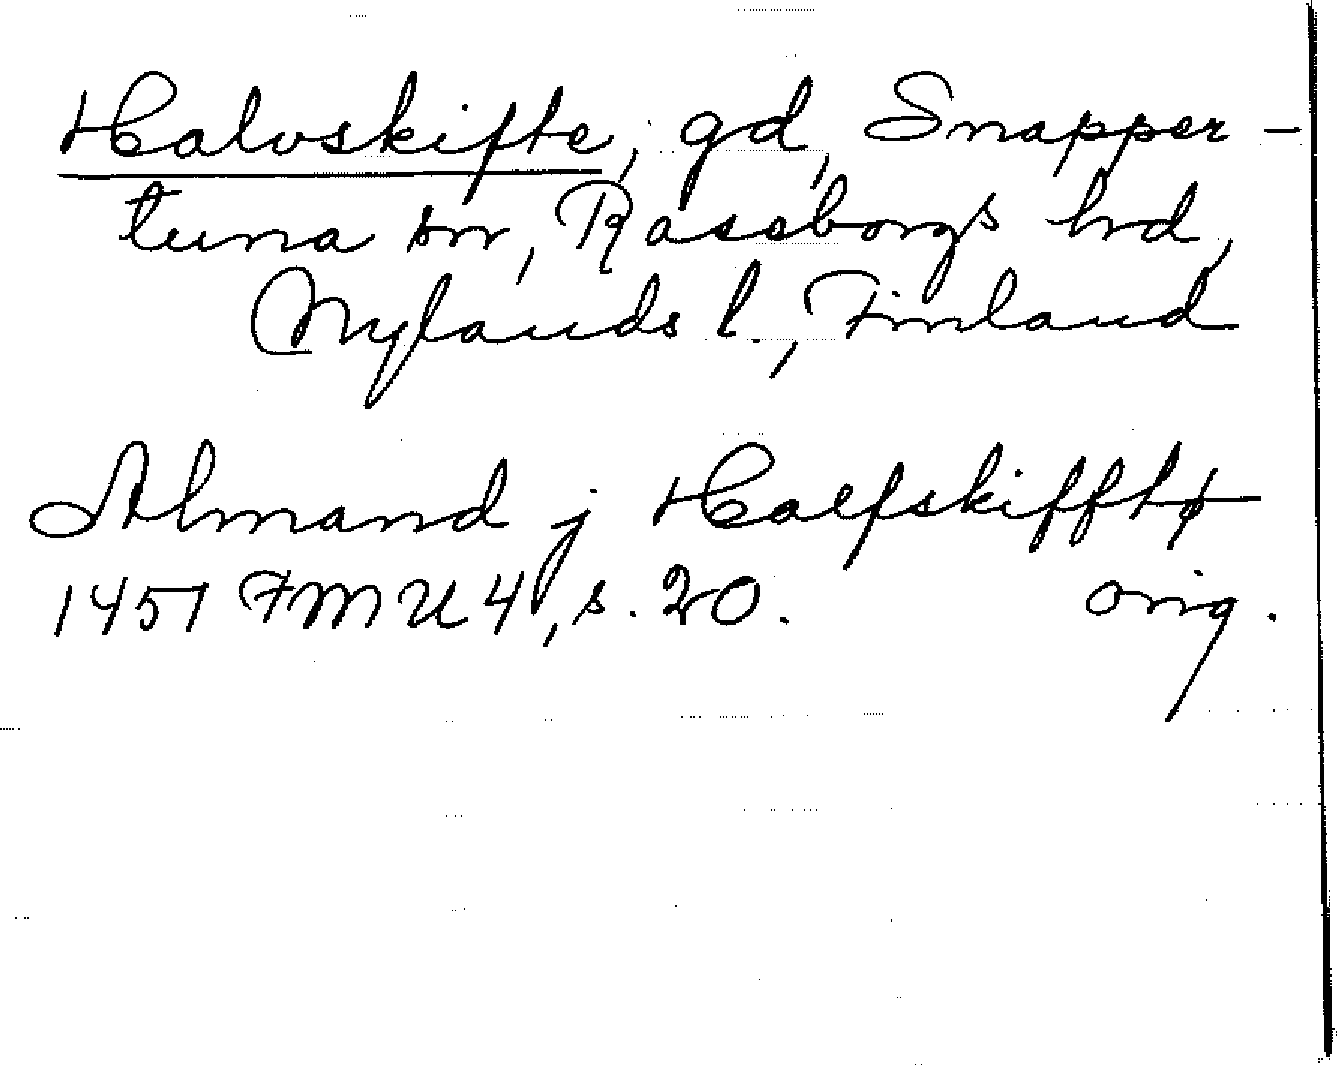 Halvskifte, gd, Snapper-
tuna sn, Raseborgs hrd,
Nylands l., Finland
Almand j Halfskifftø
1451 FMU 4, s. 20. orig.